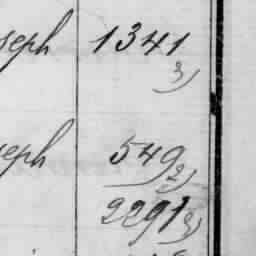 seph 1341
3)
seph 549
2)
2291
3)